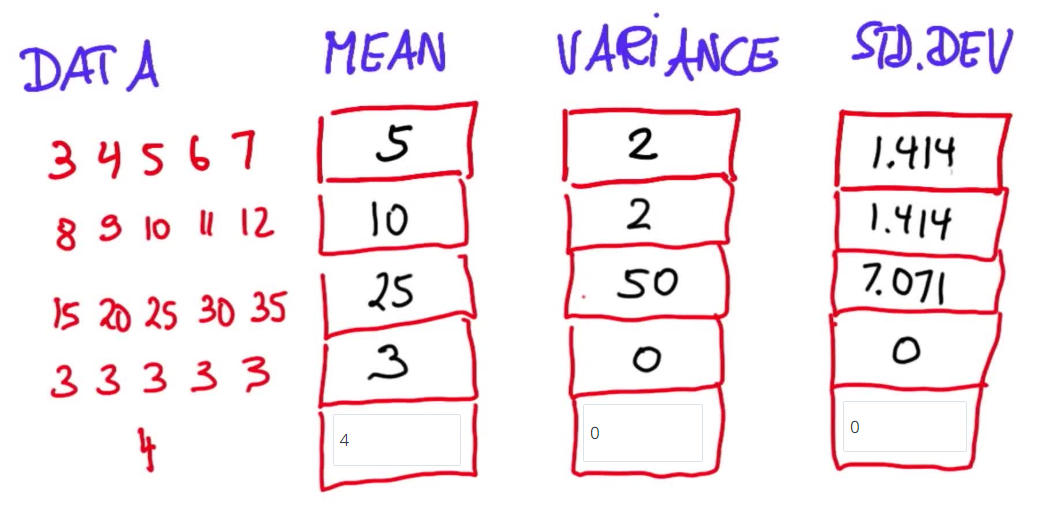 DATA MEAN VARIANCE STD.DEV
3 4 5 6 7 5 2 1.414
8 9 10 11 12 10 2 1.414
15 20 25 30 35 25 50 7.071
3 3 3 3 3 3 0 0
4 4 0 0